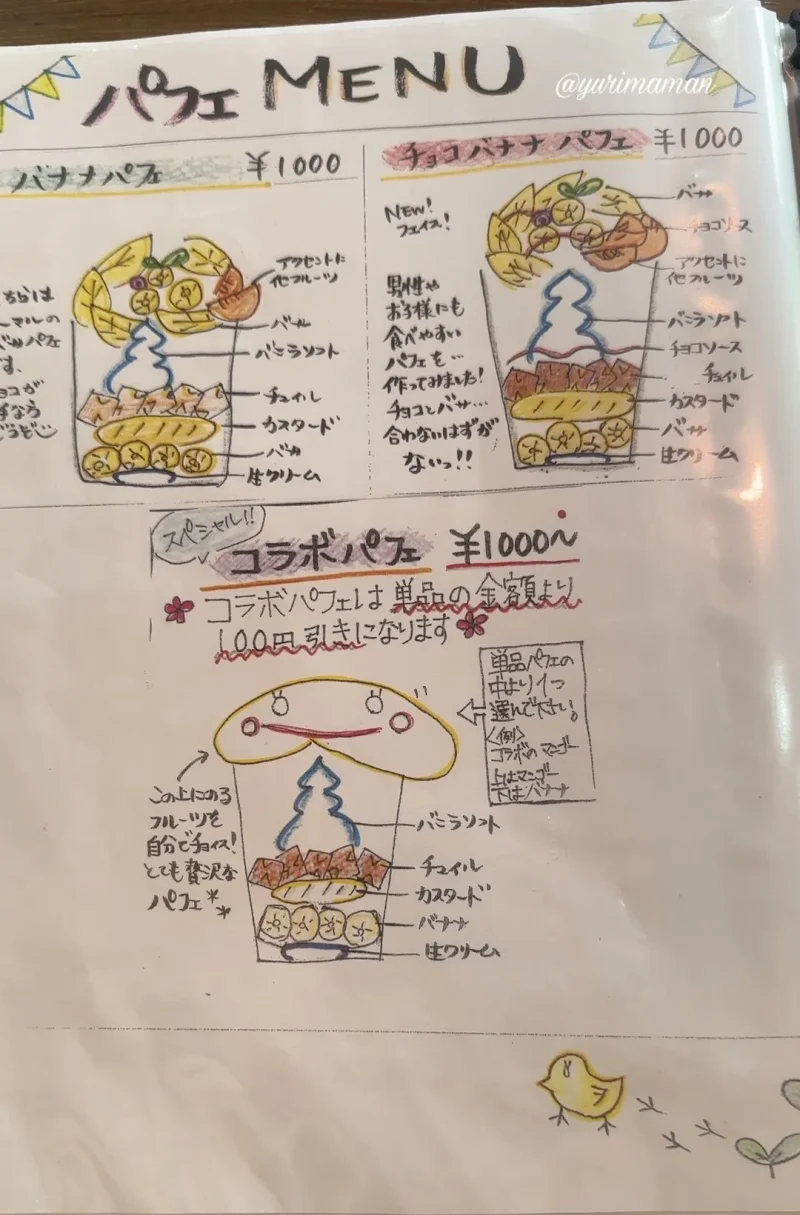 パフェ MENU
@yurimaman
バナナパフェ ¥1000
アクセントに
他フルーツ
バナナ
バニラソフト
チュイル
カスタード
バナナ
生クリーム
ちらは
ーマルの
パフェ
す。
ョコが
手なら
どうぞ
チョコバナナパフェ ¥1000
NEW!
フェイス!
男性や
お子様にも
食べやすい
パフェを…
作ってみました!
チョコとバナナ…
合わないはずが
ないっ!!
バナナ
チョコソース
アクセントに
他フルーツ
バニラソフト
チョコソース
チュイル
カスタード
バナナ
生クリーム
スペシャル!!
コラボパフェ ¥1000〜
コラボパフェは単品の金額より
100円引きになります
単品パフェの
中より1つ
選んで下さい。
〈例〉
コラボのマンゴー
上はマンゴー
下はバナナ
この上にのる
フルーツを
自分でチョイス!
とても贅沢な
パフェ**
バニラソフト
チュイル
カスタード
バナナ
生クリーム